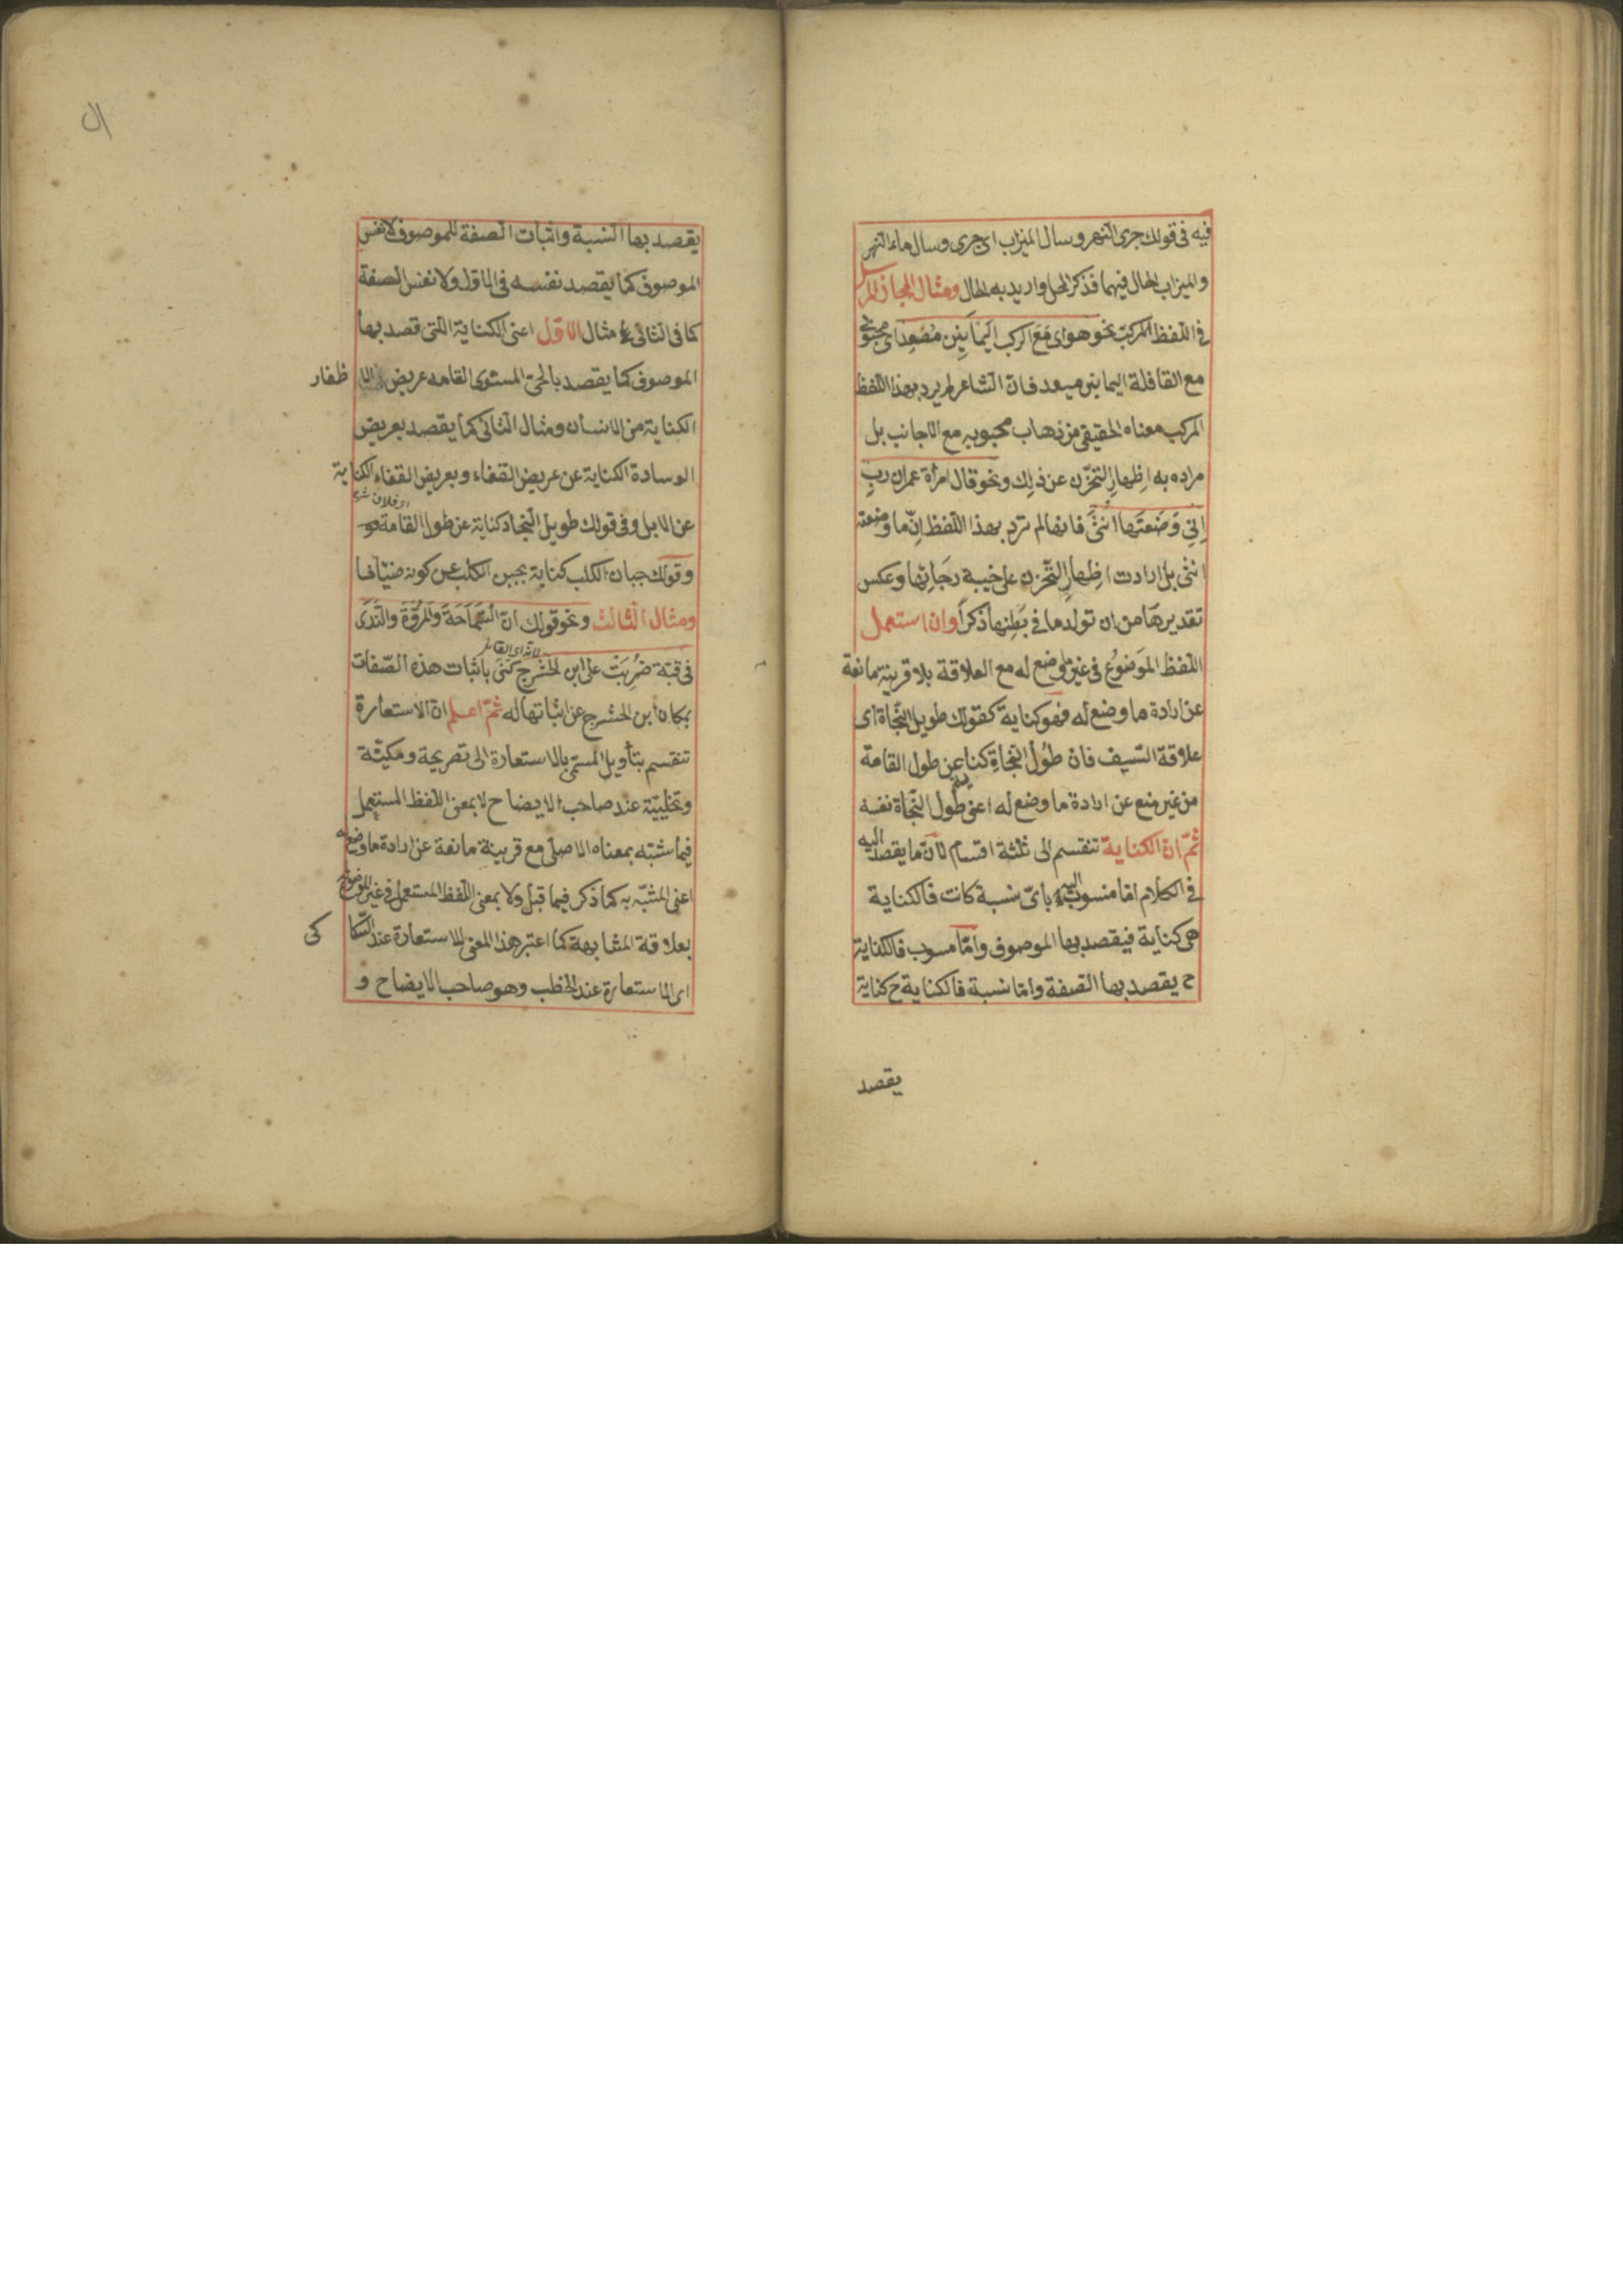 فيه فى قولك جرى النهر وسال الميزاب اى جرى وسال ماء النهر
والميزاب الحال فيهما فذكر المحل واريد به الحال ومثال المجاز المرسل
فى اللفظ المركب نحو هواى مَعَ الركب اليمانين مُصْعِد اى محبوبى
مع القافلة اليمانين مبعد فانّ الشاعر لم يرد بهذا اللفظ
المركب معناه الحقيقى من ذهاب محبوبه مع الاجانب بل
مراده به اظهار التحزّن عن ذلك ونحو قال امرأة عمران ربِ
اِنّى وَضَعتَها انثَى فانها لم ترد بهذا اللفظ انّ ما وضعته
انثى بل ارادت اظهار التحزن على خيبة رجائها وعكس
تقديرها من ان تولد ما فى بَطنِها ذكراً وان استعمل
اللفظ الموَضوُع فى غير ما وضع له مع العلاقة بلا قرينة مانعة
عن ارادة ما وضع له فهو كناية كقولك طويل النّجاة اى
علاقة السّيف فان طُول النجاةِ كناية عن طول القامة
من غير منع عن ارادة ما وضع له اعنى طول النّجاة نفسه
ثمّ انّ الكناية تنقسم الى ثلثة اقسام لانّ ما يقصد اليه
فى الكلام امّا منسوب اليه باىّ نسبة كانت فالكناية
هى كناية فيقصد بها الموصوف وامّا مسوب فالكناية
ح يقصد بها الصفة وامّا نسبة فالكناية ح كناية
يقصد
يقصد بها النسبة واثبات الصفة للموصوف لا نفس
الموصوف كما يقصد نفسه فى الاوّل ولا نفس الصفة
كما فى الثانى مثال الاوّل اعنى الكناية اللتى قصد بها
الموصوف كما يقصد بالحىّ المستوى القامه عريض الا ظفار
الكناية من الانسان ومثال الثانى كما يقصد بعريض
الوسادة الكناية عن عريض القفاء وبعريض القفاء الكناية
عن الابل وفى قولك طويل النجاد كناية عن طول القامة
وقولك جبان الكلب كناية بجبن الكلب عن كونه ضيّافا
ومثال الثالث ونحو قولك انّ السَّمَاحَةَ والمُروّةَ والنّدَى
لانه اى القائل
فى قبّة ضُرِبَتْ على ابن الحَشْرج كنى باثبات هذه الصّفات
بمكان ابن الحشرج عن اثباتها له ثمّ اعلم انّ الاستعارة
تنقسم بتأويل المسمّى بالاستعارة الى تصريحة ومكنيّة
وتخليّية عند صاحب الايضاح لا بمعنى اللفظ المستعمل
فيما شبّه بمعناه الاصلى مع قرينة مانعة عن ارادة ما وضع له
اعنى المشبّه به كما ذكر فيما قبل ولا بمعنى اللفظ المستعمل فى غير الموضوع
بعلاقة المشابهة كما اعتبر هذا المعنى للاستعارة عند السّكا كى
اى الاستعارة عند الخطب وهو صاحب الايضاح و